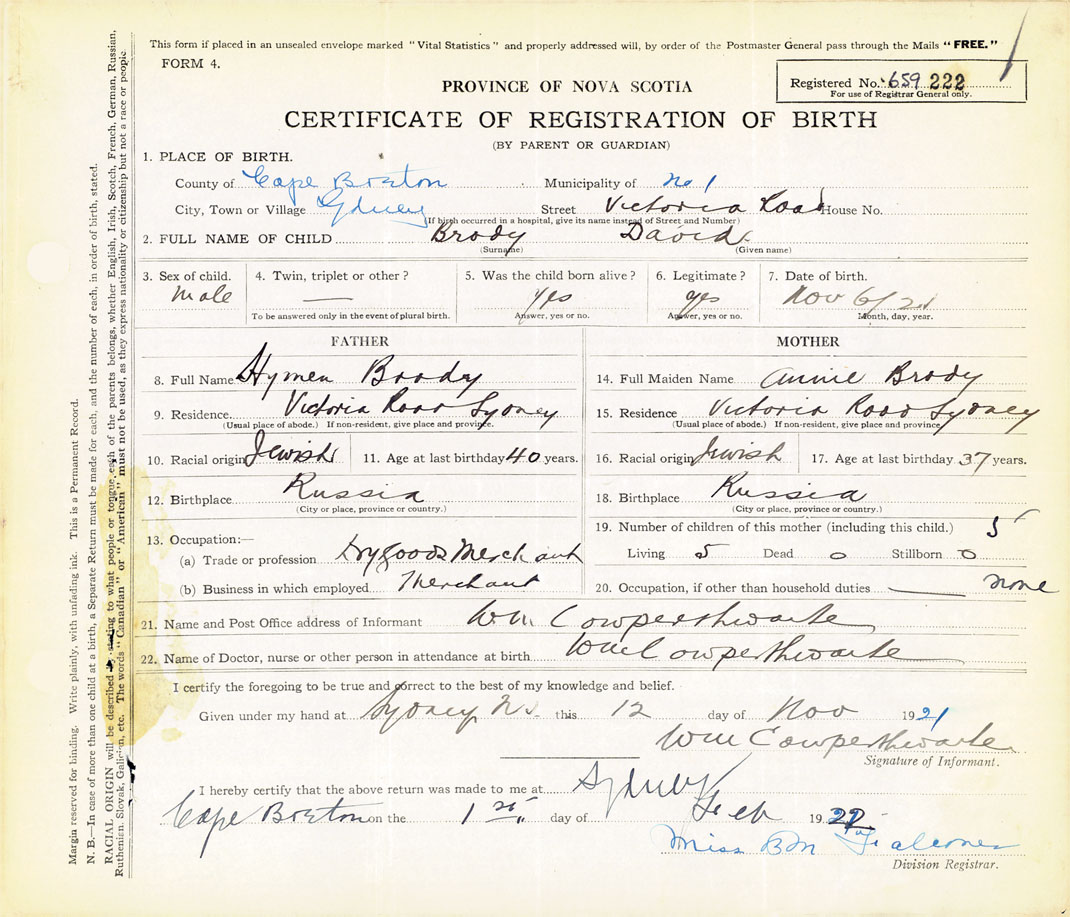 This form if placed in an unsealed envelope marked "Vital Statistics" and properly addressed will, by order of the Postmaster General pass through the Mails "FREE."
FORM 4.
Registered No. 659 222
For use of Registrar General only.
PROVINCE OF NOVA SCOTIA
CERTIFICATE OF REGISTRATION OF BIRTH
(BY PARENT OR GUARDIAN)
1. PLACE OF BIRTH.
County of Cape Breton Municipality of No 1
City, Town or Village Sydney Street Victoria Road House No.
(If birth occurred in a hospital, give its name instead of Street and Number)
2. FULL NAME OF CHILD Brody David
(Surname) (Given name)
3. Sex of child. 4. Twin, triplet or other? 5. Was the child born alive? 6. Legitimate? 7. Date of birth.
Male — yes yes Nov 6/21
To be answered only in the event of plural birth. Answer, yes or no. Answer, yes or no. Month, day, year.
FATHER MOTHER
8. Full Name Hymen Brody 14. Full Maiden Name Annie Brody
9. Residence Victoria Road Sydney 15. Residence Victoria Road Sydney
(Usual place of abode.) If non-resident, give place and province. (Usual place of abode.) If non-resident, give place and province.
10. Racial origin Jewish 11. Age at last birthday 40 years. 16. Racial origin Jewish 17. Age at last birthday 37 years.
12. Birthplace Russia 18. Birthplace Russia
(City or place, province or country.) (City or place, province or country.)
13. Occupation:— 19. Number of children of this mother (including this child.) 5
(a) Trade or profession Drygoods Merchant Living 5 Dead 0 Stillborn 0
(b) Business in which employed Merchant 20. Occupation, if other than household duties — none
21. Name and Post Office address of Informant Wm Cowperthwaite
22. Name of Doctor, nurse or other person in attendance at birth Wm Cowperthwaite
I certify the foregoing to be true and correct to the best of my knowledge and belief.
Given under my hand at Sydney N.S. this 12 day of Nov 1921
Wm Cowperthwaite
Signature of Informant.
I hereby certify that the above return was made to me at Sydney
Cape Breton on the 1st day of Feb 1922
Miss BM Falconer
Division Registrar.
Margin reserved for binding. Write plainly, with unfading ink. This is a Permanent Record.
N. B.—In case of more than one child at a birth, a Separate Return must be made for each, and the number of each, in order of birth, stated.
RACIAL ORIGIN will be described by stating to what people or tongue, each of the parents belongs, whether English, Irish, Scotch, French, German, Russian,
Ruthenian, Slovak, Galician, etc. The words "Canadian" or "American" must not be used, as they express nationality or citizenship but not a race or people